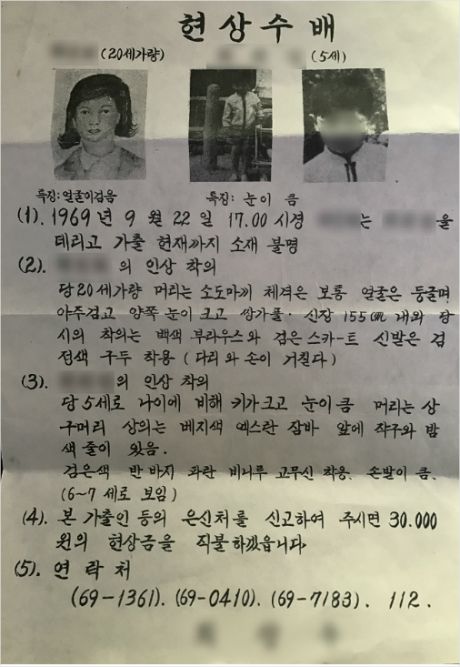 현상수배
(20세가량) (5세)
특징: 얼굴이검음 특징: 눈이 큼
(1). 1969년 9월 22일 17.00 시경 는 을
데리고 가출 현재까지 소재 불명
(2). 의 인상 착의
당20세가량 머리는 소도마끼 체격은 보통 얼굴은 둥글며
아주검고 양쪽 눈이 크고 쌍가풀. 신장 155㎝ 내외 당
시의 착의는 백색 부라우스와 검은 스카-트 신발은 검
정색 구두 착용 (다리와 손이 거칠다)
(3). 의 인상 착의
당 5세로 나이에 비해 키가크고 눈이 큼 머리는 상
구머리 상의는 베지색 에스란 잠바 앞에 작구와 밤
색 줄이 있음.
검은색 반바지 파란 비니루 고무신 착용. 손발이 큼.
(6~7 세로 보임)
(4). 본 가출인 등의 은신처를 신고하여 주시면 30.000
원의 현상금을 직불하겠읍니다
(5). 연락처
(69-1361). (69-0410). (69-7183). 112.